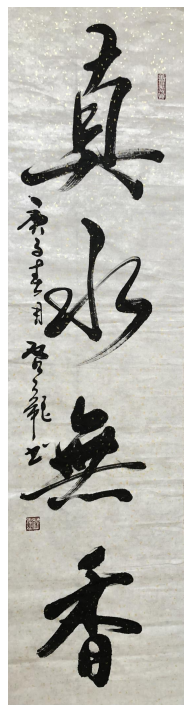 真水無香
庚子春月